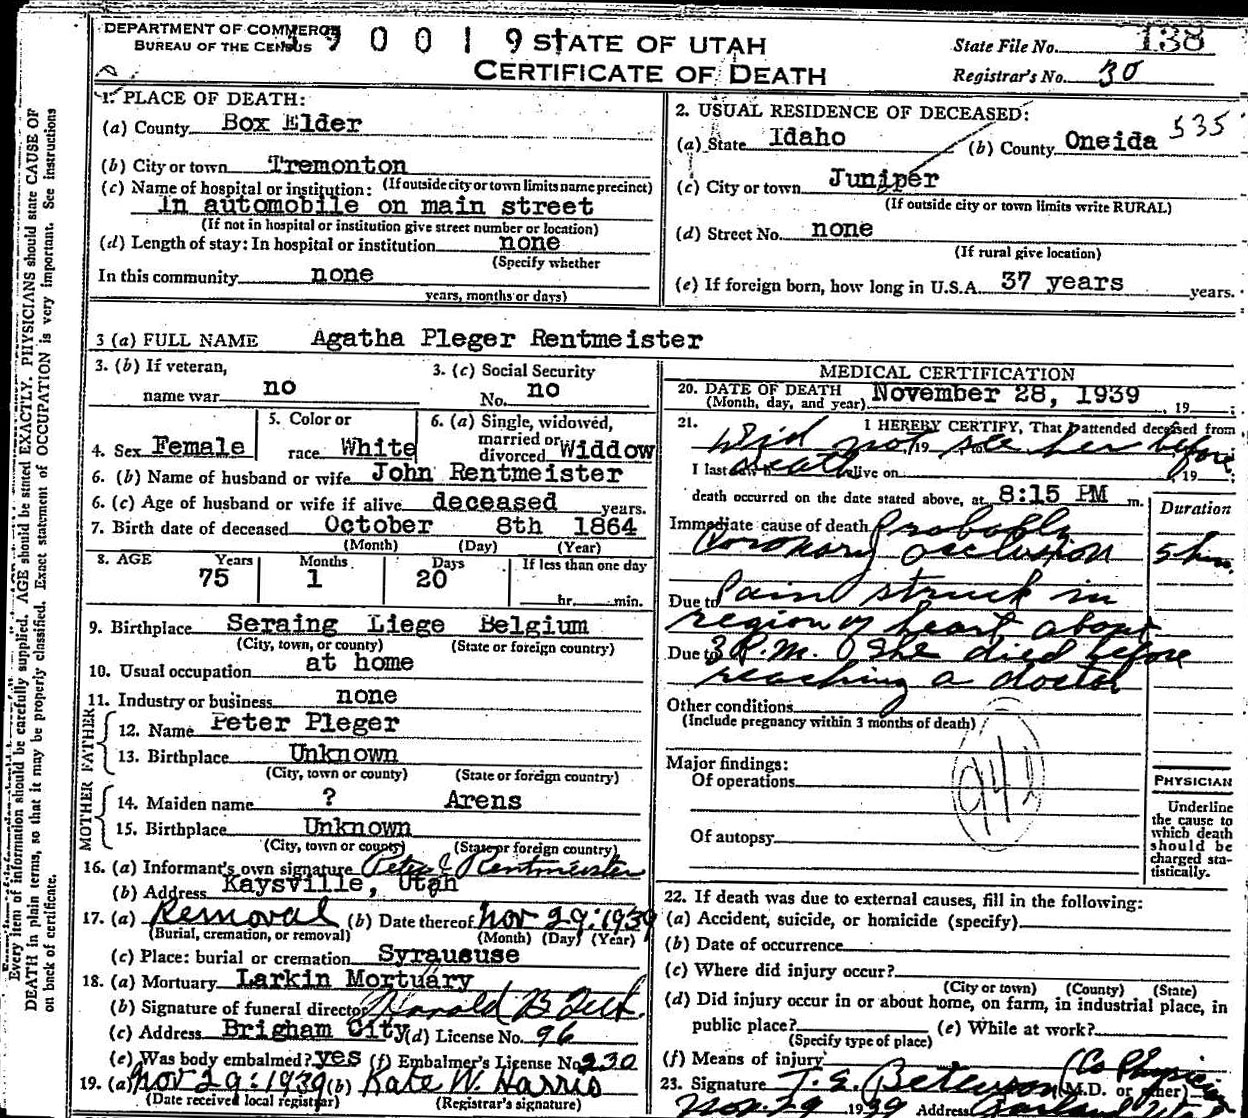 DEPARTMENT OF COMMERCE
BUREAU OF THE CENSUS
9 0 0 1 9
STATE OF UTAH
CERTIFICATE OF DEATH
State File No. 138
Registrar's No. 30
1. PLACE OF DEATH:
(a) County Box Elder
(b) City or town Tremonton
(If outside city or town limits name precinct)
(c) Name of hospital or institution:
In automobile on main street
(If not in hospital or institution give street number or location)
(d) Length of stay: In hospital or institution none
(Specify whether
In this community none
years, months or days)
2. USUAL RESIDENCE OF DECEASED:
535
(a) State Idaho (b) County Oneida
(c) City or town Juniper
(If outside city or town limits write RURAL)
(d) Street No. none
(If rural give location)
(e) If foreign born, how long in U.S.A. 37 years years.
3 (a) FULL NAME Agatha Pleger Rentmeister
3. (b) If veteran,
name war no
3. (c) Social Security
No. no
4. Sex Female
5. Color or
race White
6. (a) Single, widowed,
married or
divorced Widdow
6. (b) Name of husband or wife John Rentmeister
6. (c) Age of husband or wife if alive deceased years.
7. Birth date of deceased October 8th 1864
(Month) (Day) (Year)
8. AGE Years Months Days If less than one day
75 1 20
hr. min.
9. Birthplace Seraing Liege Belgium
(City, town, or county) (State or foreign country)
10. Usual occupation at home
11. Industry or business none
FATHER
12. Name Peter Pleger
13. Birthplace Unknown
(City, town or county) (State or foreign country)
MOTHER
14. Maiden name ? Arens
15. Birthplace Unknown
(City, town or county) (State or foreign country)
16. (a) Informant's own signature Peter Rentmeister
(b) Address Kaysville, Utah
17. (a) Removal (b) Date thereof Nov 29: 1939
(Burial, cremation, or removal) (Month) (Day) (Year)
(c) Place: burial or cremation Syraususe
18. (a) Mortuary Larkin Mortuary
(b) Signature of funeral director Harold B.
(c) Address Brigham City (d) License No. 96
(e) Was body embalmed? yes (f) Embalmer's License No. 230
19. (a) Nov 29: 1939 (b) Kate W. Harris
(Date received local registrar) (Registrar's signature)
MEDICAL CERTIFICATION
20. DATE OF DEATH November 28, 1939
(Month, day, and year) , 19 ;
21. I HEREBY CERTIFY, That I attended deceased from
Did not see her before
death
I last alive on , 19
death occurred on the date stated above, at 8:15 PM m.
Duration
Immediate cause of death Probably
Coronary occlusion 5 hrs.
Due to Pain struck in
region of heart about
Due to 3 P.M. She died before
reaching a doctor
Other conditions
(Include pregnancy within 3 months of death)
Major findings:
Of operations
Of autopsy
PHYSICIAN
Underline
the cause to
which death
should be
charged sta-
tistically.
22. If death was due to external causes, fill in the following:
(a) Accident, suicide, or homicide (specify)
(b) Date of occurrence
(c) Where did injury occur?
(City or town) (County) (State)
(d) Did injury occur in or about home, on farm, in industrial place, in
public place? (e) While at work?
(Specify type of place)
(f) Means of injury
(Co Physician
23. Signature (M.D. or other)
Nov. 29 1939 Address Garland
Every item of information should be carefully supplied. AGE should be stated EXACTLY. PHYSICIANS should state CAUSE OF
DEATH in plain terms, so that it may be properly classified. Exact statement of OCCUPATION is very important. See instructions
on back of certificate.